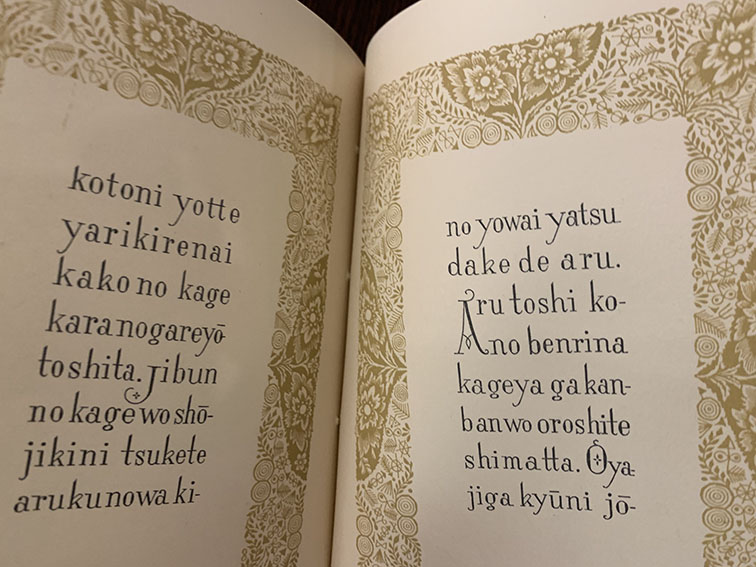 kotoni yotte
yarikirenai
kako no kage
kara nogareyō
toshita. Jibun
no kage wo shō-
jikini tsukete
aruku nowa ki-
no yowai yatsu
dake de aru.
Aru toshi ko-
no benrina
kageya ga kan-
ban wo oroshite
shimatta. Oya-
jiga kyūni jō-